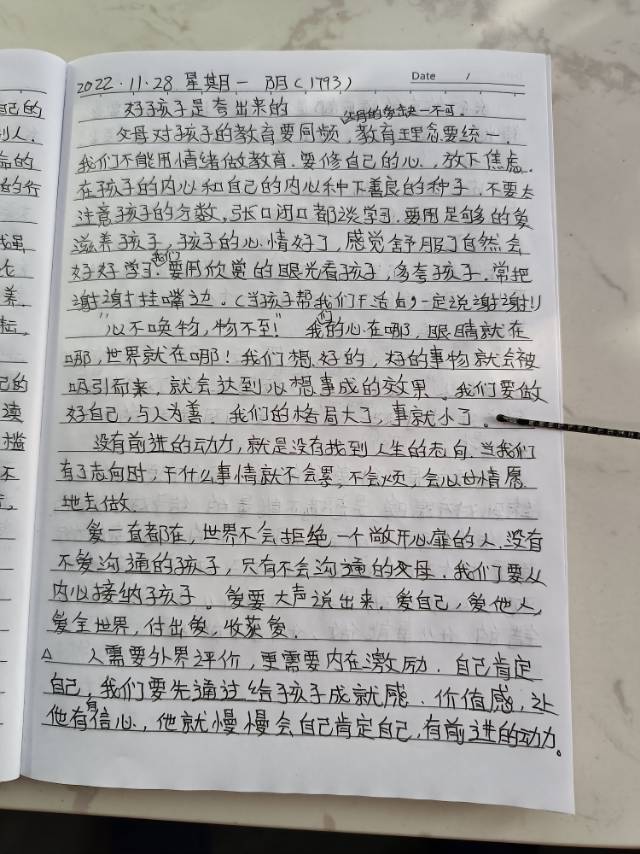 2022.11.28 星期一 阴(1793)
Date /
好孩子是夸出来的
父母的爱缺一不可。
父母对孩子的教育要同频,教育理念要统一.
我们不能用情绪做教育.要修自己的心,放下焦虑.
在孩子的内心和自己的内心种下善良的种子,不要太
注意孩子的分数,张口闭口都谈学习.要用足够的爱
滋养孩子,孩子的心情好了,感觉舒服了自然会
好好学习.我们要用欣赏的眼光看孩子,多夸孩子.常把
谢谢挂嘴边.(当孩子帮我们干活时,一定说谢谢!)
"心不唤物,物不至!" 我们的心在哪,眼睛就在
哪,世界就在哪!我们想好的,好的事物就会被
吸引而来,就会达到心想事成的效果.我们要做
好自己,与人为善.我们的格局大了,事就小了.
没有前进的动力,就是没有找到人生的志向.当我们
有了志向时,干什么事情就不会累,不会烦,会心甘情愿
地去做.
爱一直都在,世界不会拒绝一个敞开心扉的人.没有
不爱沟通的孩子,只有不会沟通的父母.我们要从
内心接纳孩子。爱要大声说出来.爱自己,爱他人,
爱全世界,付出爱,收获爱.
△ 人需要外界评价,更需要内在激励.自己肯定
自己,我们要先通过给孩子成就感.价值感,让
他有信心,他就慢慢会自己肯定自己,有前进的动力。
己的
别人.
的行
我虽
养.
耘,
己的
读
不